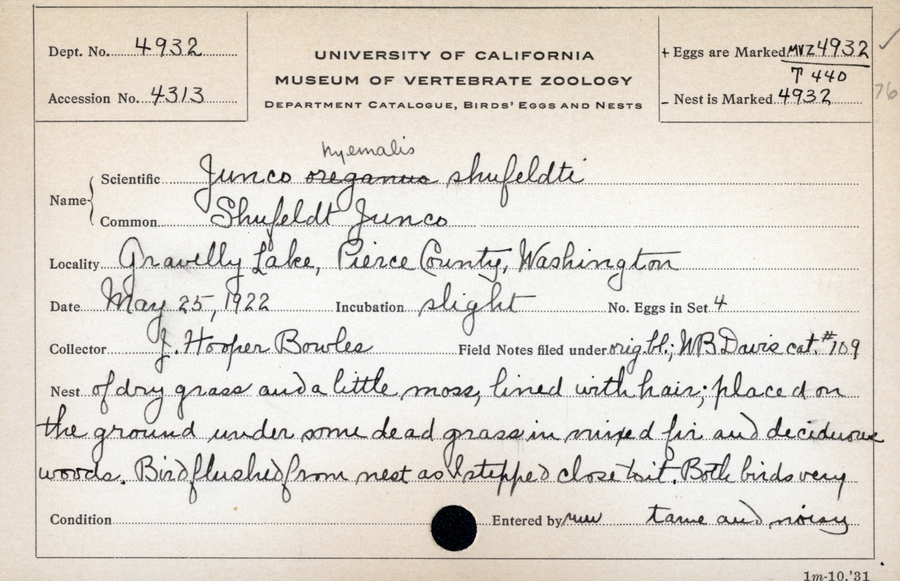 Dept. No. 4932
Accession No. 4313
UNIVERSITY OF CALIFORNIA
MUSEUM OF VERTEBRATE ZOOLOGY
DEPARTMENT CATALOGUE, BIRDS' EGGS AND NESTS
+ Eggs are Marked MVZ 4932 ✓
T 440
- Nest is Marked 4932 76
hyemalis
Name Scientific Junco oreganus shufeldti
Common Shufeldt Junco
Locality Gravelly Lake, Pierce County, Washington
Date May 25, 1922 Incubation slight No. Eggs in Set 4
Collector J. Hooper Bowles Field Notes filed under orig. bl.; WB Davis cat. #709
Nest of dry grass and a little moss, lined with hair; placed on
the ground under some dead grass in mixed fir and deciduous
woods. Bird flushed from nest as I stepped close to it. Both birds very
Condition Entered by tame and noisy
1m-10,'31